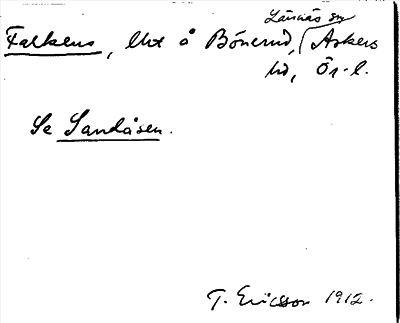 Lännäs sn
Falkens, lht å Bönerud, Askers
hd, Ör. l.
Se Sandåsen.
T. Ericsson 1912.